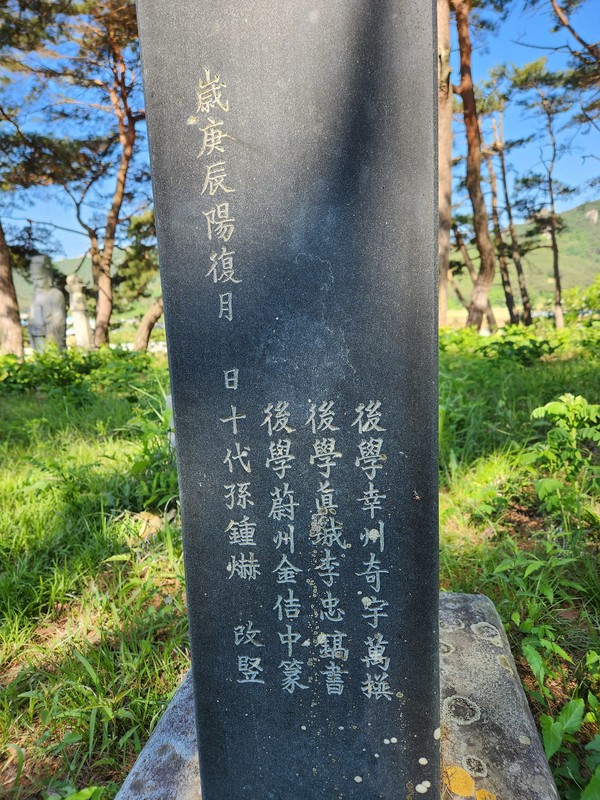 後學幸州奇宇萬撰
後學眞城李忠鎬書
後學蔚州金佶中篆
歲庚辰陽復月 日十代孫鍾爀 改竪